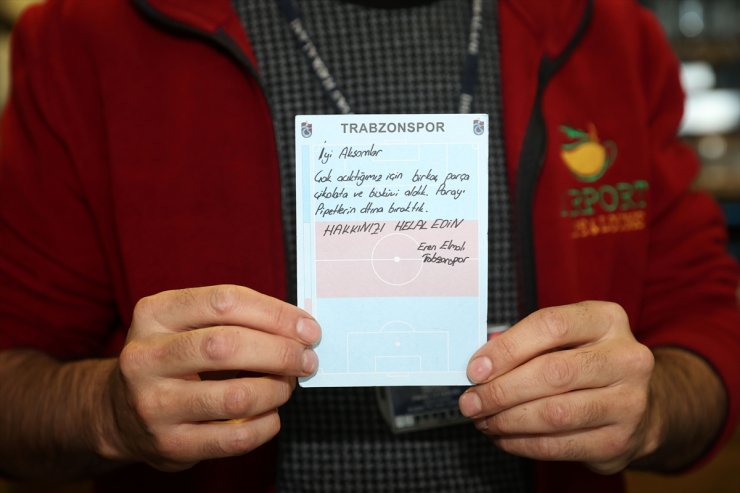 TRABZONSPOR
İyi Akşamlar
Çok acıktığımız için birkaç parça
çikolata ve bisküvi aldık. Parayı
Pipetlerin altına bıraktık.
HAKKINIZI HELAL EDİN
Eren Elmalı
Trabzonspor